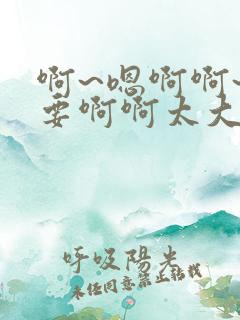 啊~嗯啊啊~
要啊啊太大
呼吸陽光
未经同意禁止转载